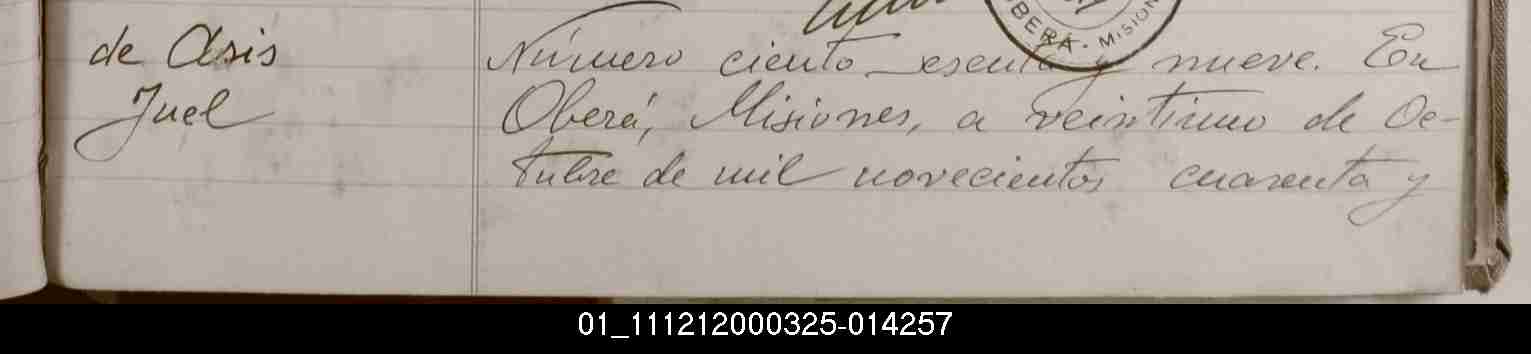 OBERÁ - MISION
de Asis
Juel
Número ciento esenta y nueve. En
Oberá, Misiones, a veintiuno de Oc-
tubre de mil novecientos cuarenta y
01_111212000325-014257